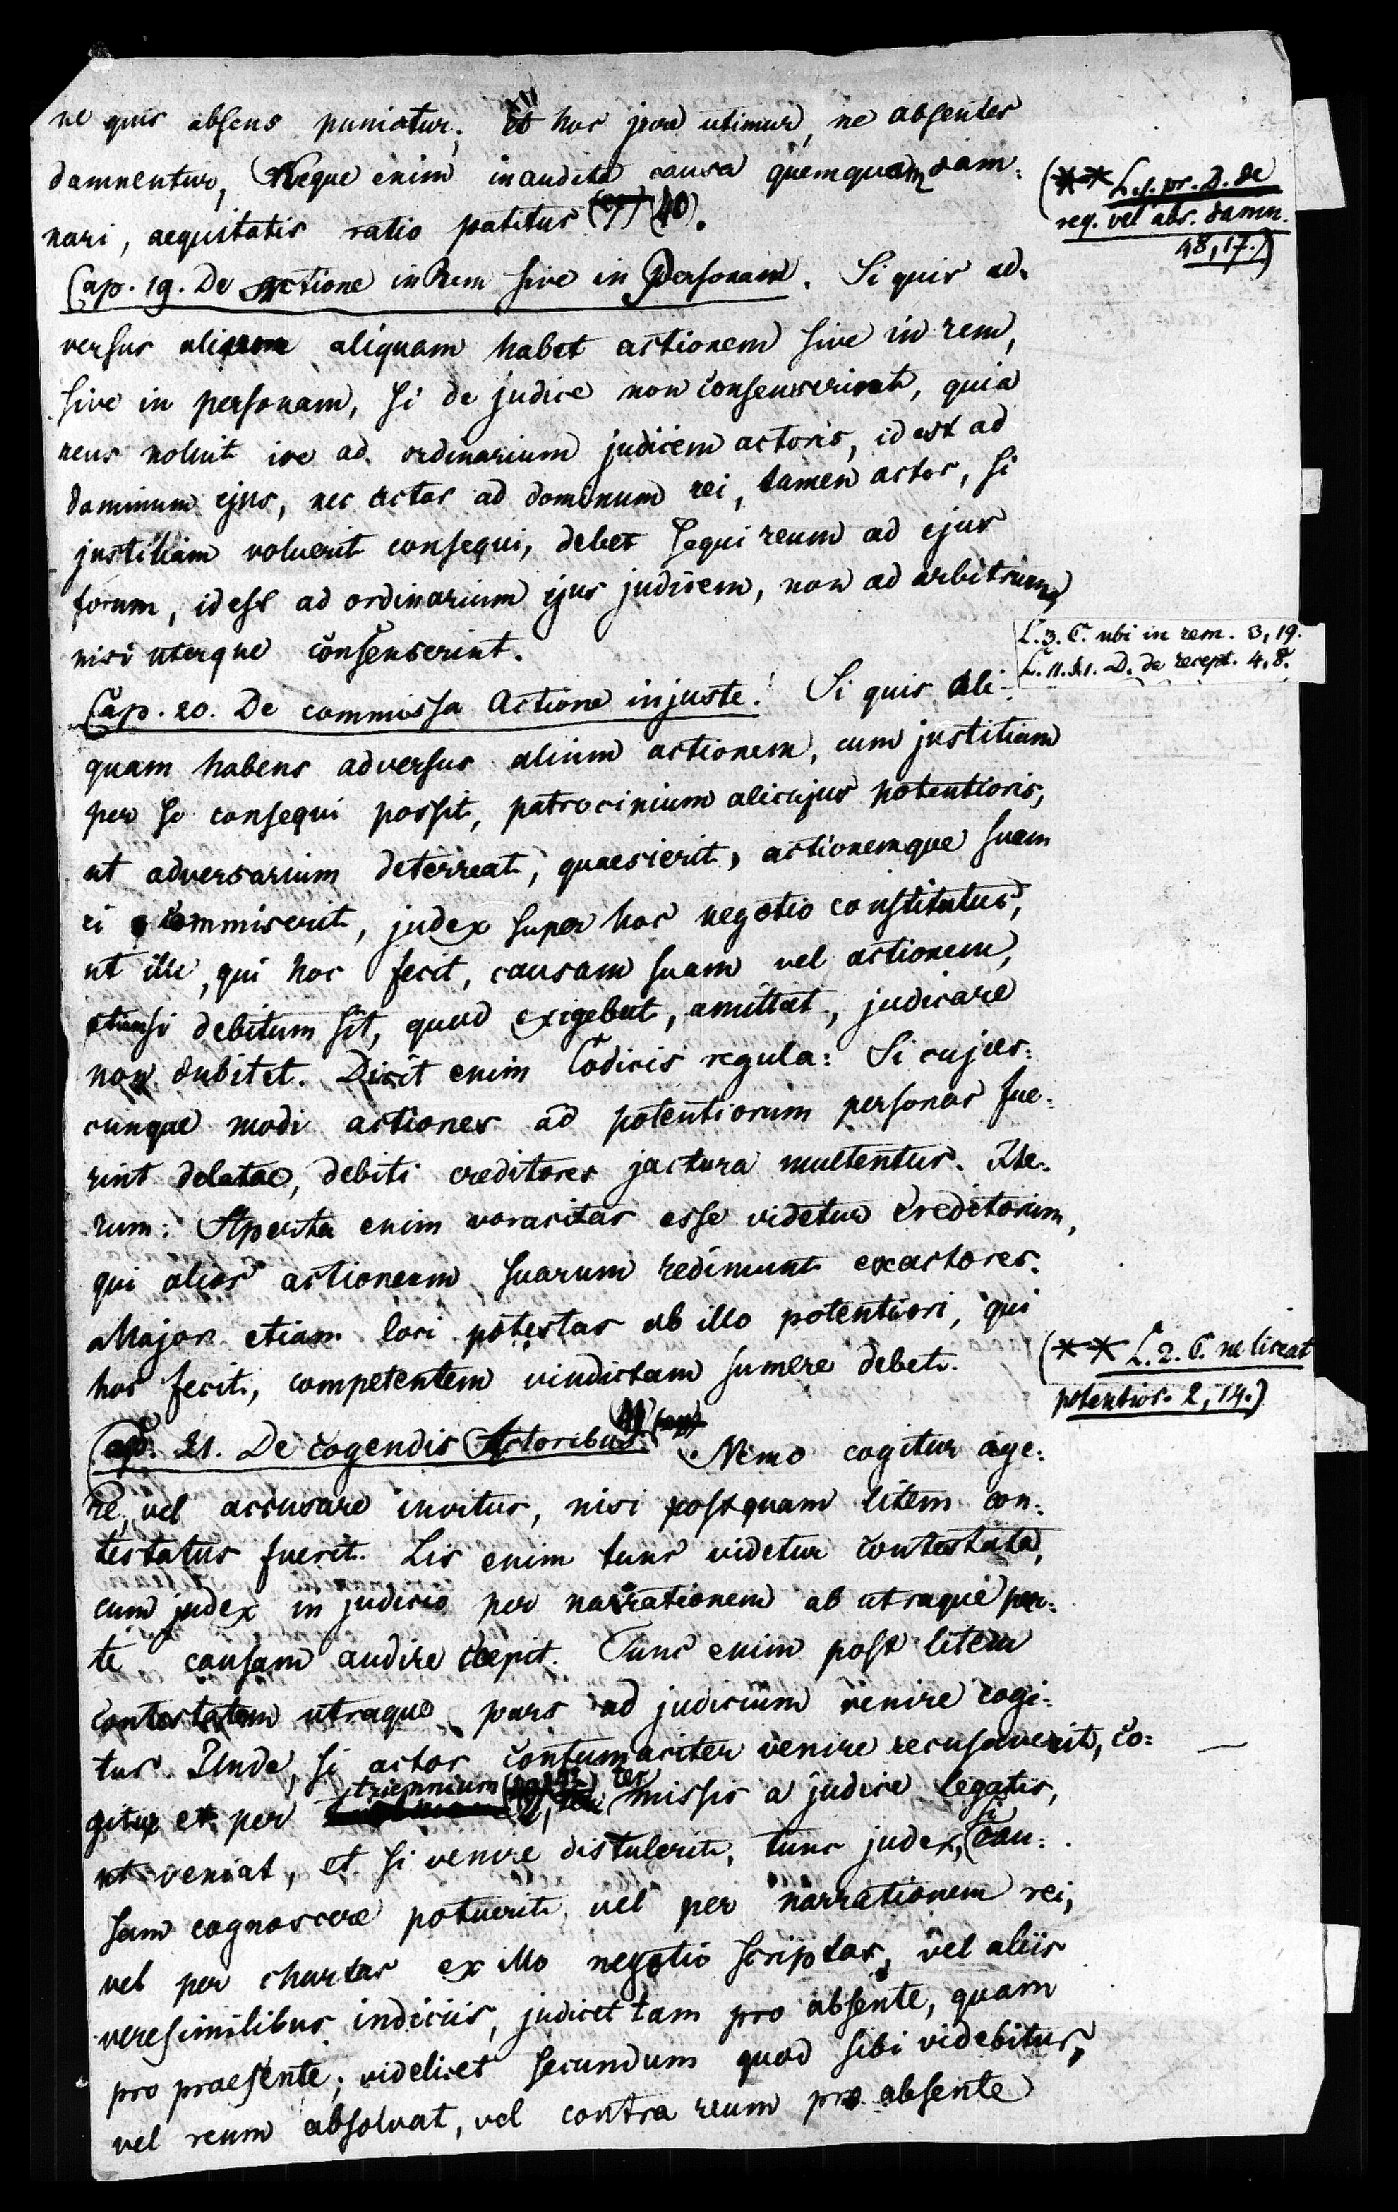 ne quis absens puniatur. Et hoc jure utimur, ne absentes
damnentur, Neque enim inaudita causa quemquam dam-
nari, aequitatis ratio patitur (40).
(** L. 1. pr. D. de
req. vel abs. damn.
48,17.)
Cap. 19. De actione in Rem sive in Personam. Si quis ad-
versus aliquem aliquam habet actionem sive in rem,
sive in personam, si de judice non consenserint, quia
reus noluit ire ad ordinarium judicem actoris, id est ad
dominum ejus, nec actor ad dominum rei, tamen actor, si
justitiam voluerit consequi, debet sequi reum ad ejus
forum, id est ad ordinarium ejus judicem, non ad arbitrum,
nisi uterque consenserint.
L. 3. C. ubi in rem. 3,19.
L. 11. §.1. D. de recept. 4,8.
Cap. 20. De commissa Actione injuste. Si quis ali-
quam habens adversus alium actionem, cum justitiam
per se consequi possit, patrocinium alicujus potentioris,
ut adversarium deterreat, quaesierit, actionemque suam
ei commiserit, judex super hoc negotio constitutus,
ut ille, qui hoc fecit, causam suam vel actionem,
etiamsi debitum sit, quod exigebat, amittat, judicare
non dubitet. Dicit enim Codicis regula: Si cujus-
cunque modi actiones ad potentiorum personas fue-
rint delatae, debiti creditores jactura multentur. Ite-
rum: Aperta enim voracitas esse videtur Creditorum,
qui alios actionum suarum redimunt exactores.
Major etiam loci potestas ab illo potentiori, qui
hoc fecit, competentem vindictam sumere debet.
(** L. 2. C. ne liceat
potentior. 2,14.)
Cap. 21. De cogendis Actoribus (41). Nemo cogitur age-
re, vel accusare invitus, nisi postquam litem con-
testatus fuerit. Lis enim tunc videtur contestata,
cum judex in judicio per narrationem ab utraque par-
te causam audire coepit. Tunc enim post litem
contestatam utraque pars ad judicium venire cogi-
tur. Unde, si actor contumaciter venire recusaverit, co-
gitur et per triennium ter missis a judice legatis,
ut veniat, et si venire distulerit, tunc judex, si cau-
sam cognoscere potuerit vel per narrationem rei,
vel per chartas ex illo negotio scriptas, vel aliis
veresimilibus indiciis, judicet tam pro absente, quam
pro praesente; videlicet secundum quod sibi videbitur,
vel reum absolvat, vel contra reum pro absente